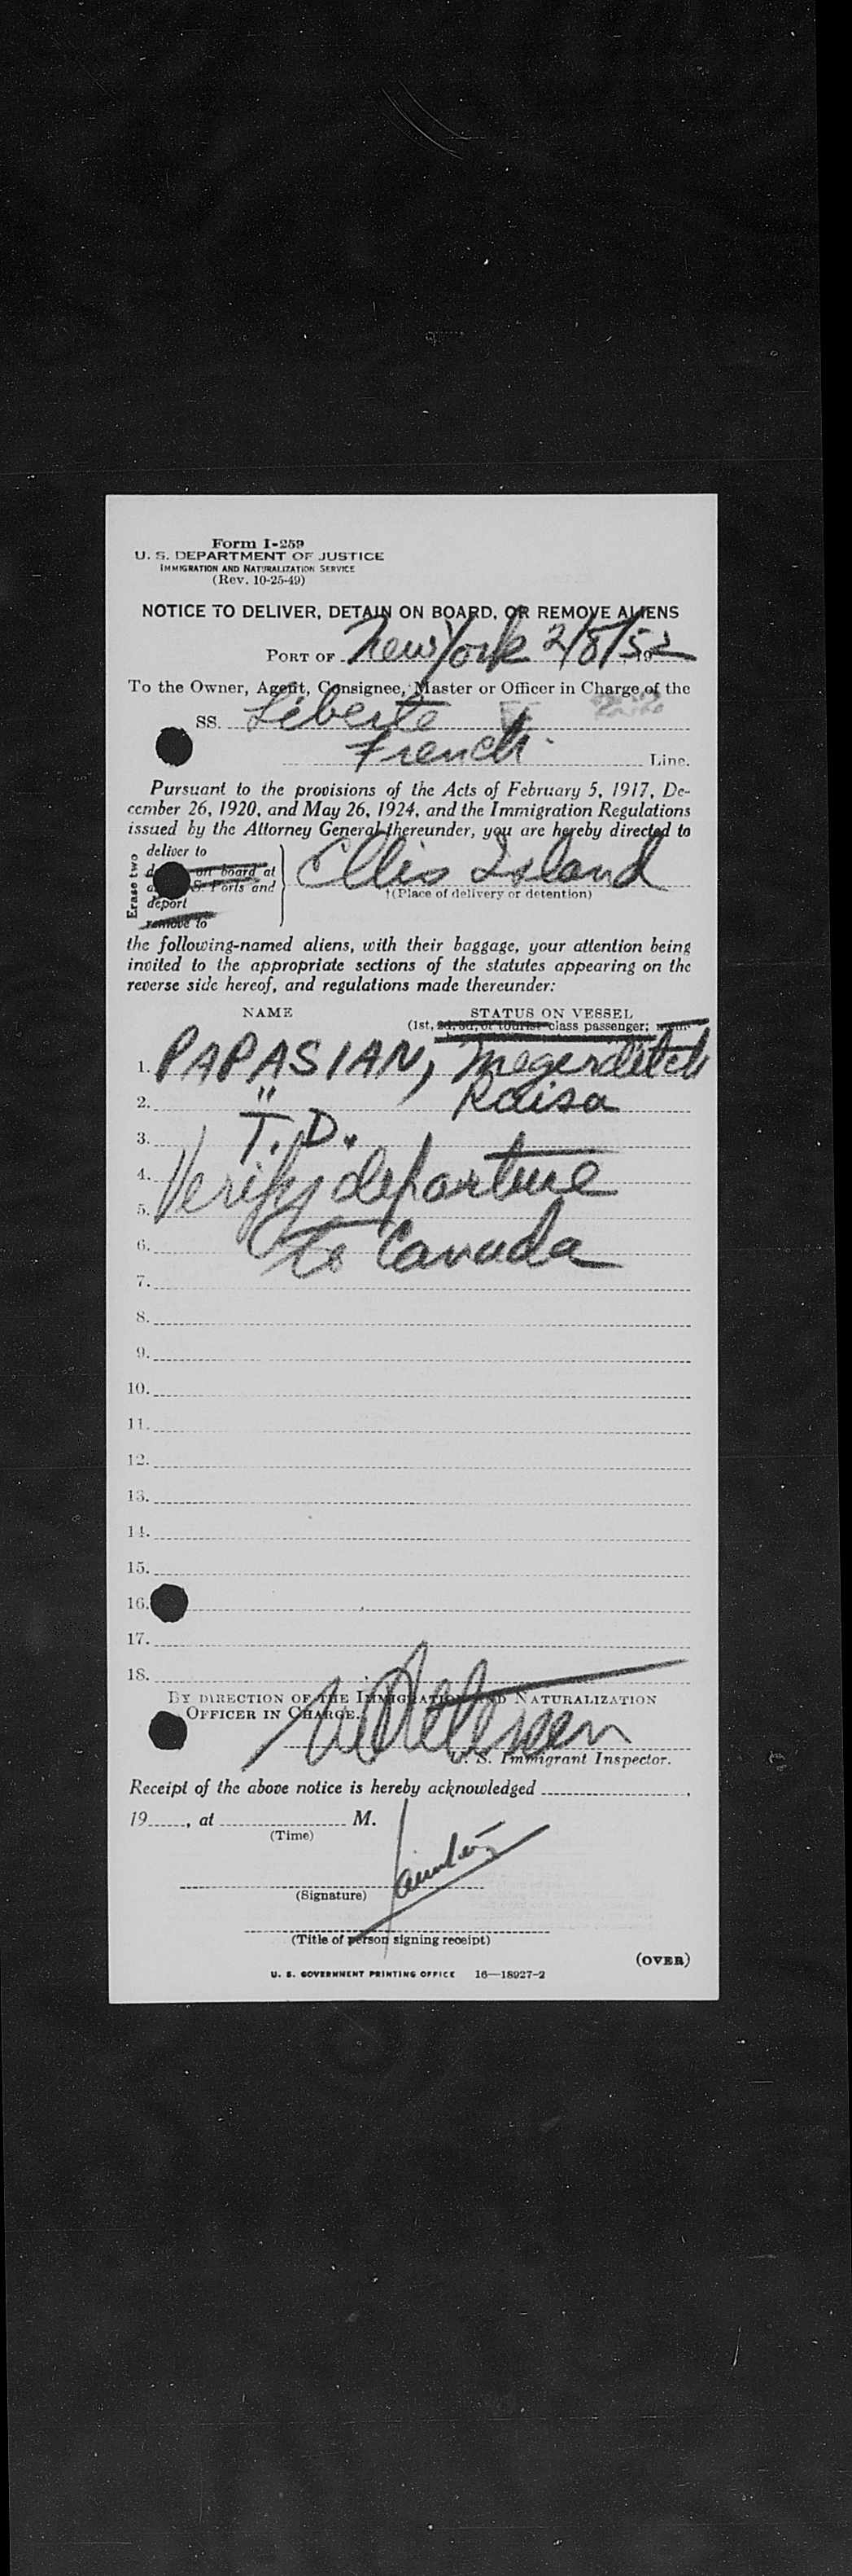 Form I-259
U. S. DEPARTMENT OF JUSTICE
IMMIGRATION AND NATURALIZATION SERVICE
(Rev. 10-25-49)
NOTICE TO DELIVER, DETAIN ON BOARD, OR REMOVE ALIENS
PORT OF New York 2/8/52
To the Owner, Agent, Consignee, Master or Officer in Charge of the
SS. Liberte
French Line.
Pursuant to the provisions of the Acts of February 5, 1917, De-
cember 26, 1920, and May 26, 1924, and the Immigration Regulations
issued by the Attorney General thereunder, you are hereby directed to
Erase two
deliver to
on board at
S. Ports and
deport
remove to
Ellis Island
†(Place of delivery or detention)
the following-named aliens, with their baggage, your attention being
invited to the appropriate sections of the statutes appearing on the
reverse side hereof, and regulations made thereunder:
NAME STATUS ON VESSEL
(1st, 2d, 3d, or tourist-class passenger;
1. PAPASIAN, Megerditch
2. " Raisa
3. T. D.
4. Verify departure
5.
6. to Canada
7.
8.
9.
10.
11.
12.
13.
14.
15.
16.
17.
18.
BY DIRECTION OF THE IMMIGRATION AND NATURALIZATION
OFFICER IN CHARGE.
U. S. Immigrant Inspector.
Receipt of the above notice is hereby acknowledged
19 , at M.
(Time)
(Signature)
(Title of person signing receipt)
(OVER)
U. S. GOVERNMENT PRINTING OFFICE 16—18927-2